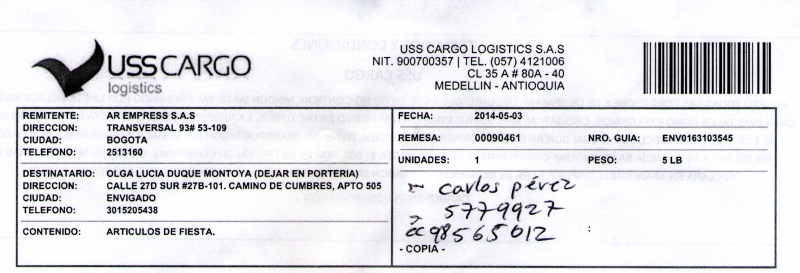 USS CARGO
logistics
USS CARGO LOGISTICS S.A.S
NIT. 900700357 | TEL. (057) 4121006
CL 35 A # 80A - 40
MEDELLIN - ANTIOQUIA
REMITENTE: AR EMPRESS S.A.S
DIRECCION: TRANSVERSAL 93# 53-109
CIUDAD: BOGOTA
TELEFONO: 2513160
DESTINATARIO: OLGA LUCIA DUQUE MONTOYA (DEJAR EN PORTERIA)
DIRECCION: CALLE 27D SUR #27B-101. CAMINO DE CUMBRES, APTO 505
CIUDAD: ENVIGADO
TELEFONO: 3015205438
CONTENIDO: ARTICULOS DE FIESTA.
FECHA: 2014-05-03
REMESA: 00090461 NRO. GUIA: ENV0163103545
UNIDADES: 1 PESO: 5 LB
carlos pérez
5779927
cc 98565012
- COPIA -